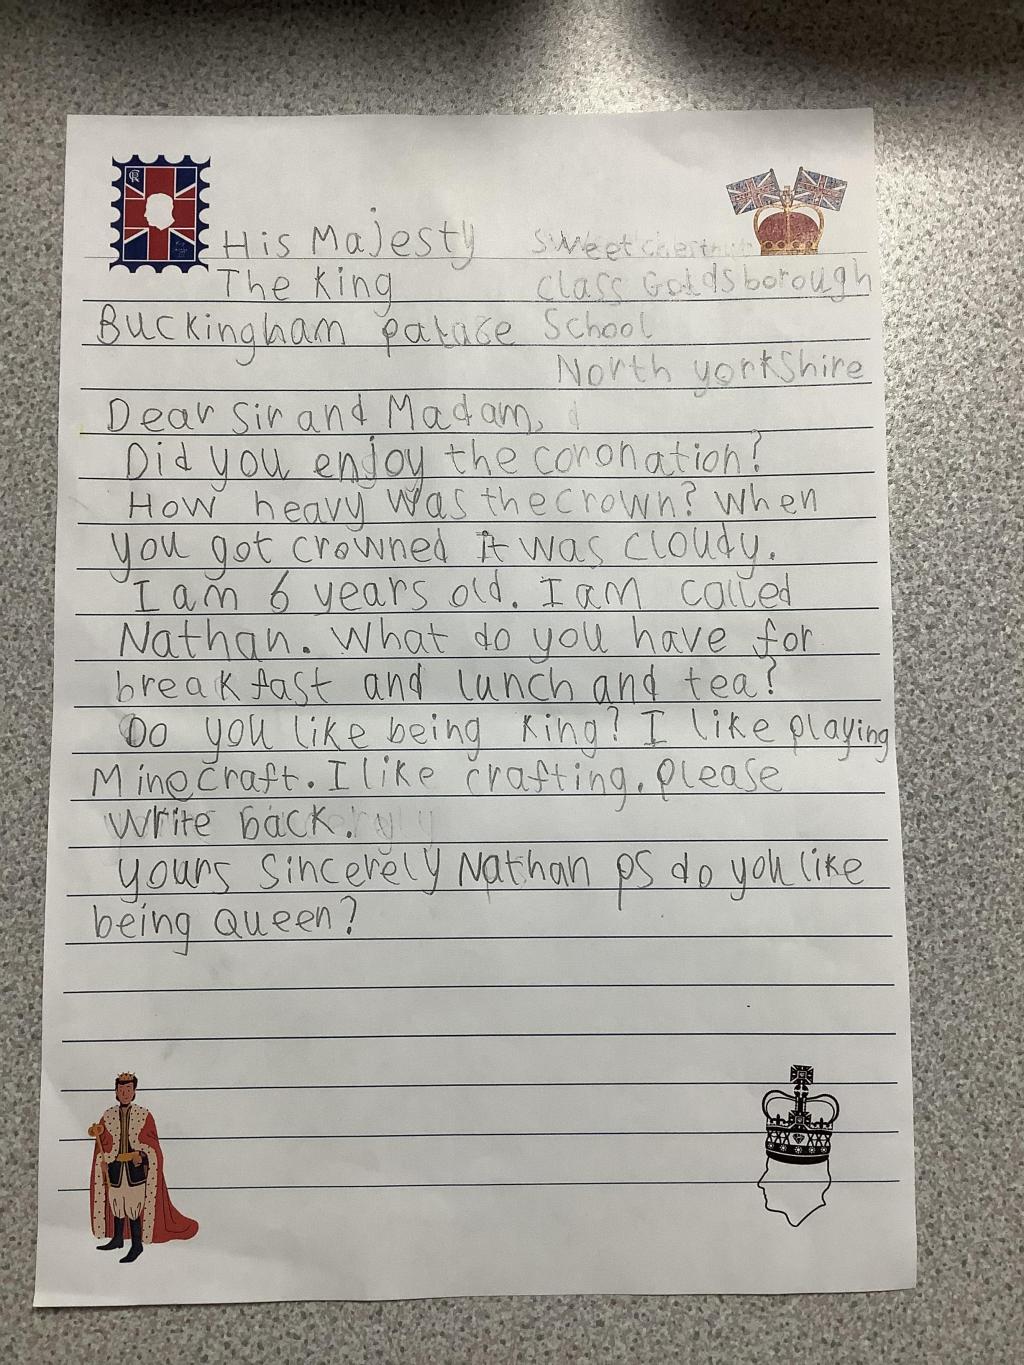 His Majesty Sweet chestnut
The King class Goldsborough
Buckingham palace School
North yorkshire
Dear Sir and Madam,
Did you enjoy the coronation?
How heavy was the crown? When
you got crowned it was cloudy.
I am 6 years old. I am called
Nathan. What do you have for
breakfast and lunch and tea?
Do you like being King? I like playing
Minecraft. I like crafting. please
write back.
yours Sincerely Nathan ps do you like
being Queen?